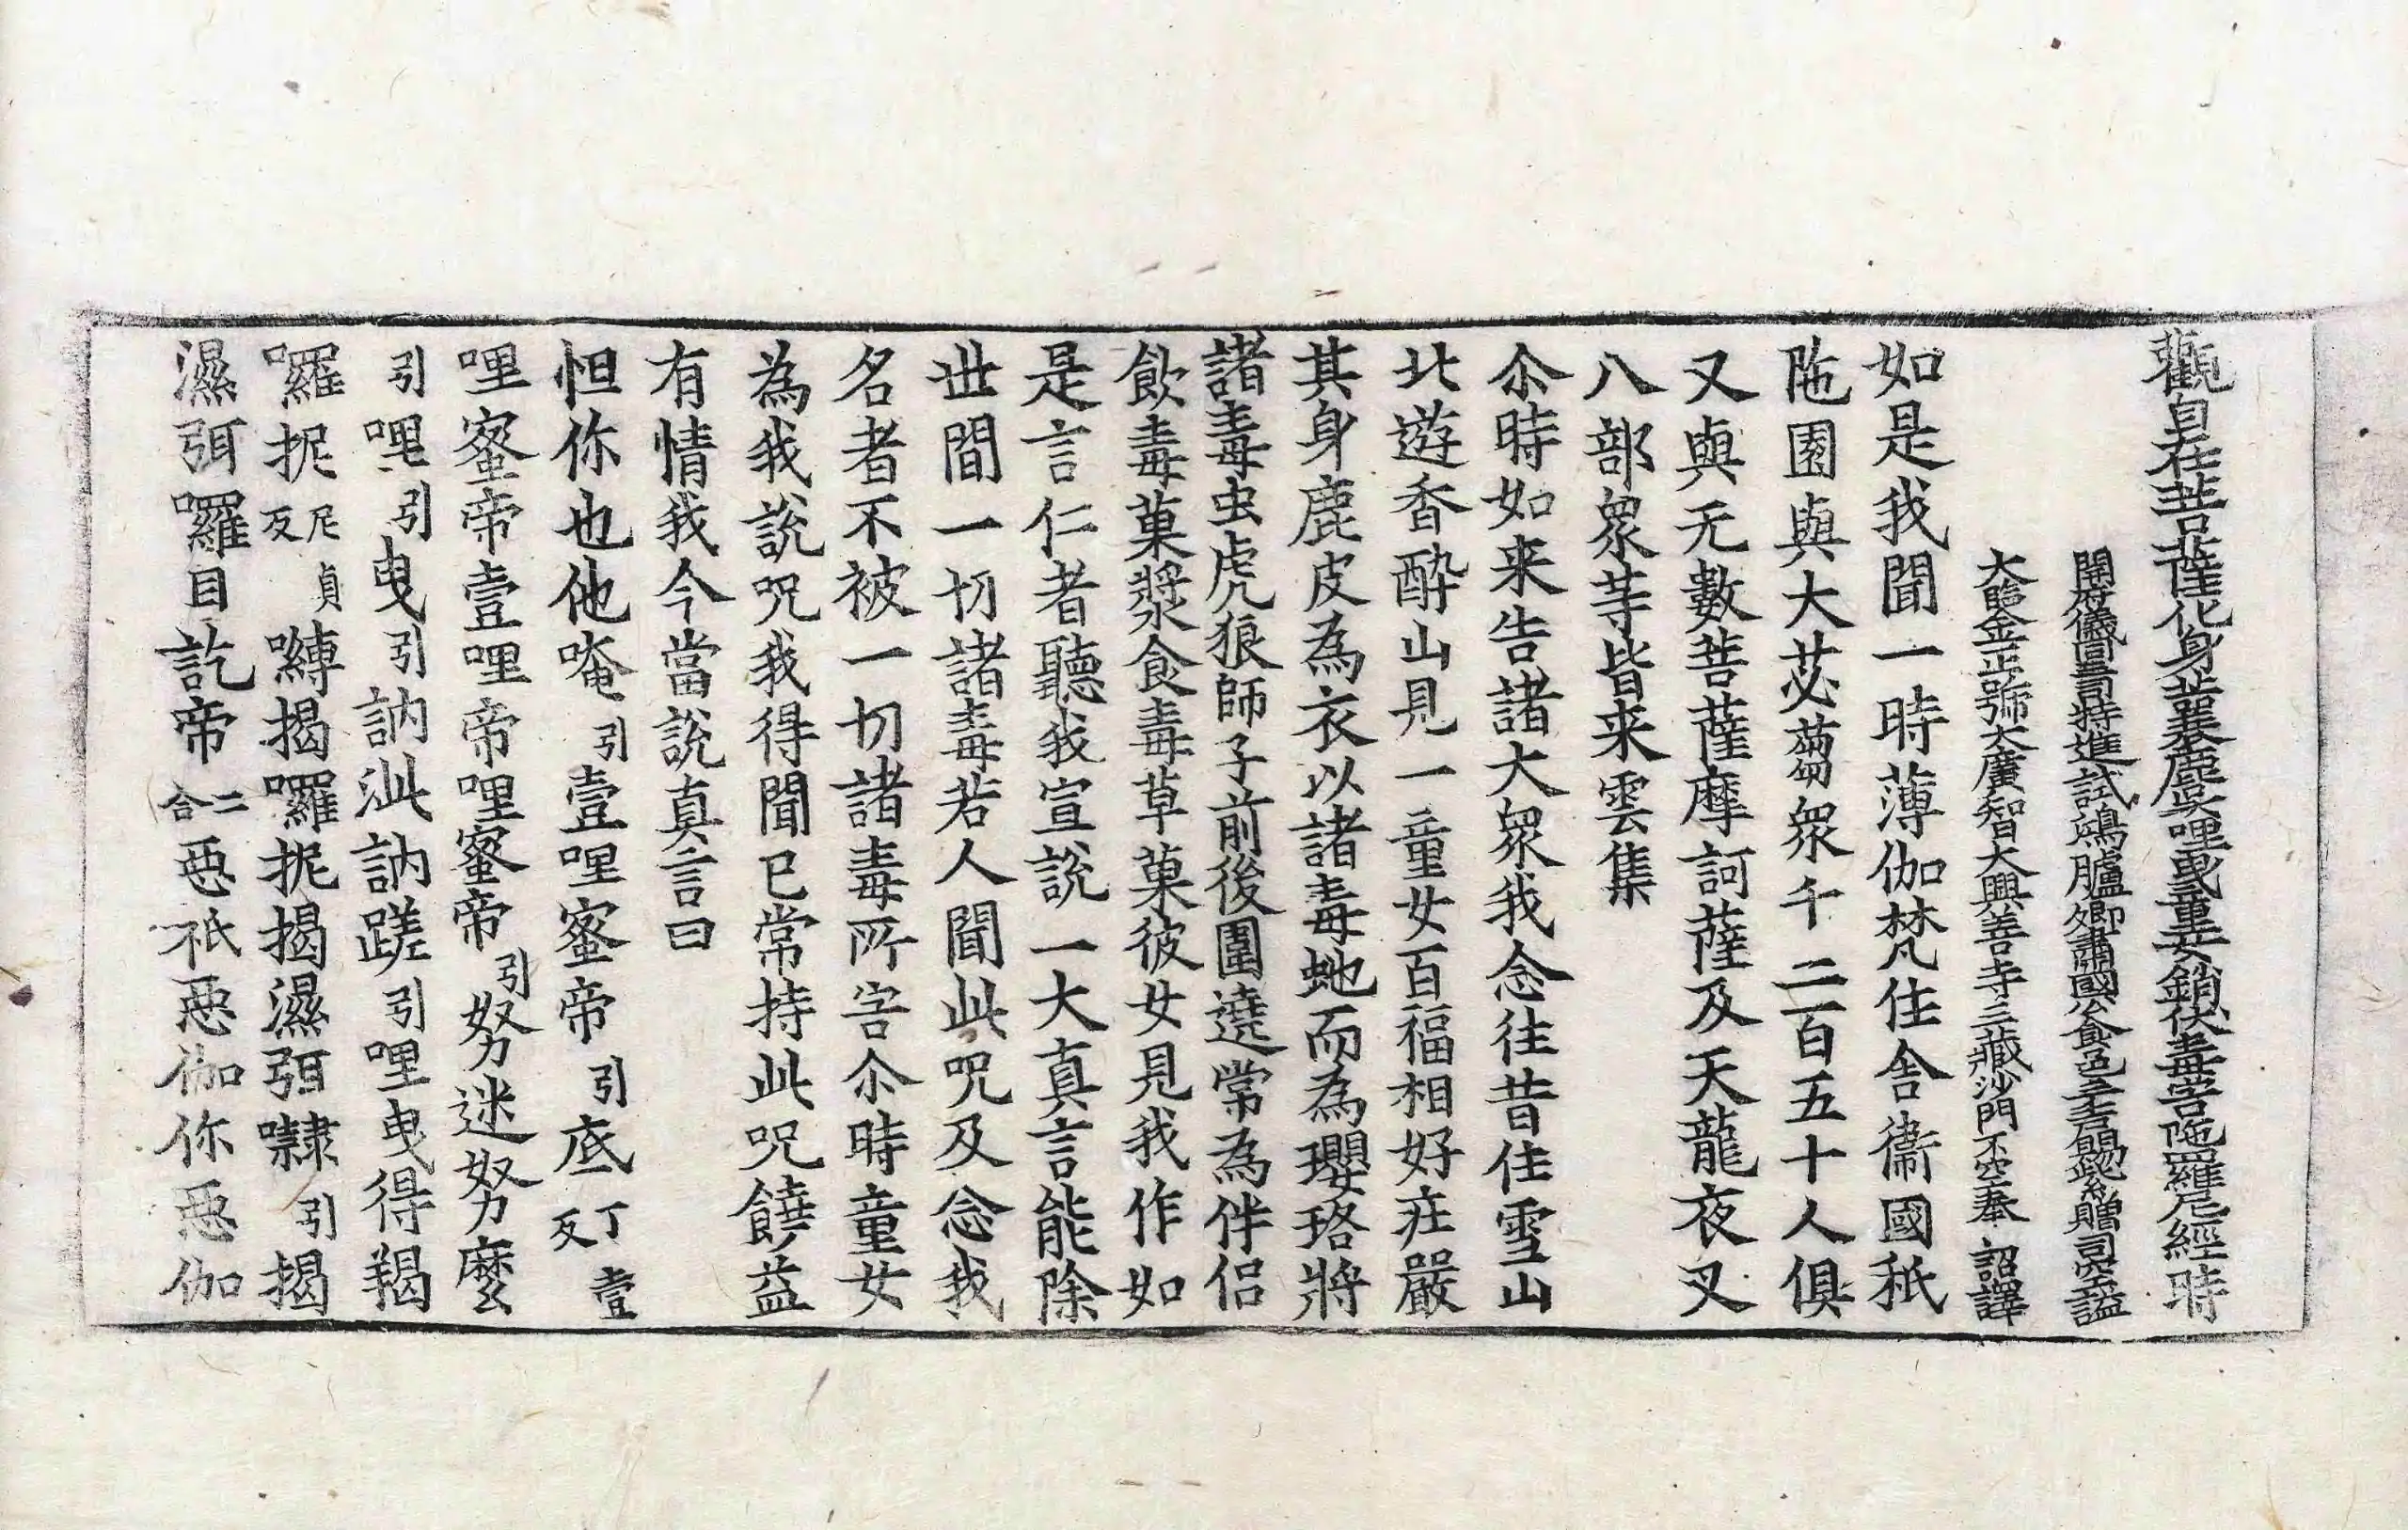 觀自在菩薩化身蘘麌哩曳童女銷伏毒害陁羅尼經 時
開府儀同三司特進試鴻臚卿肅國公食邑三千戶賜紫贈司空謚
大鑒金正號大廣智大興善寺三藏沙門不空奉 詔譯
如是我聞一時薄伽梵住舍衞國秖
陁園與大苾蒭衆千二百五十人俱
又與无數菩薩摩訶薩及天龍夜叉
八部衆䓁皆来雲集
尒時如来告諸大衆我念往昔住雪山
北遊香酔山見一童女百福相好庄嚴
其身鹿皮為衣以諸毒虵而為瓔珞將
諸毒虫虎狼師子前後圍遶常為伴侣
飲毒菓漿食毒草菓彼女見我作如
是言仁者聽我宣說一大真言能除
世間一切諸毒若人聞此咒及念我
名者不被一切諸毒所害尒時童女
為我說咒我得聞已常持此咒饒益
有情我今當說真言曰
怛你也他唵引壹哩蜜帝引底丁壹反
哩蜜帝壹哩帝哩蜜帝引努迷努麼
引哩引曳引訥泚訥蹉引哩曳得羯
囉抳尼貞反嚩揭囉抳揭濕弭㘑引揭
濕弭囉目訖帝二合惡祇惡伽你惡伽